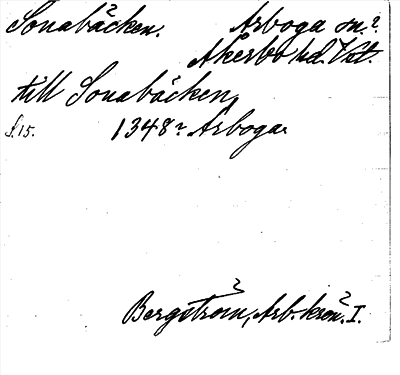 Sonabäcken. Arboga sn.?
Åkerbo hd. Vstl.
till Sonabäcken,
s. 15. 1348? Arboga.
Bergström, Arb. krön. I.